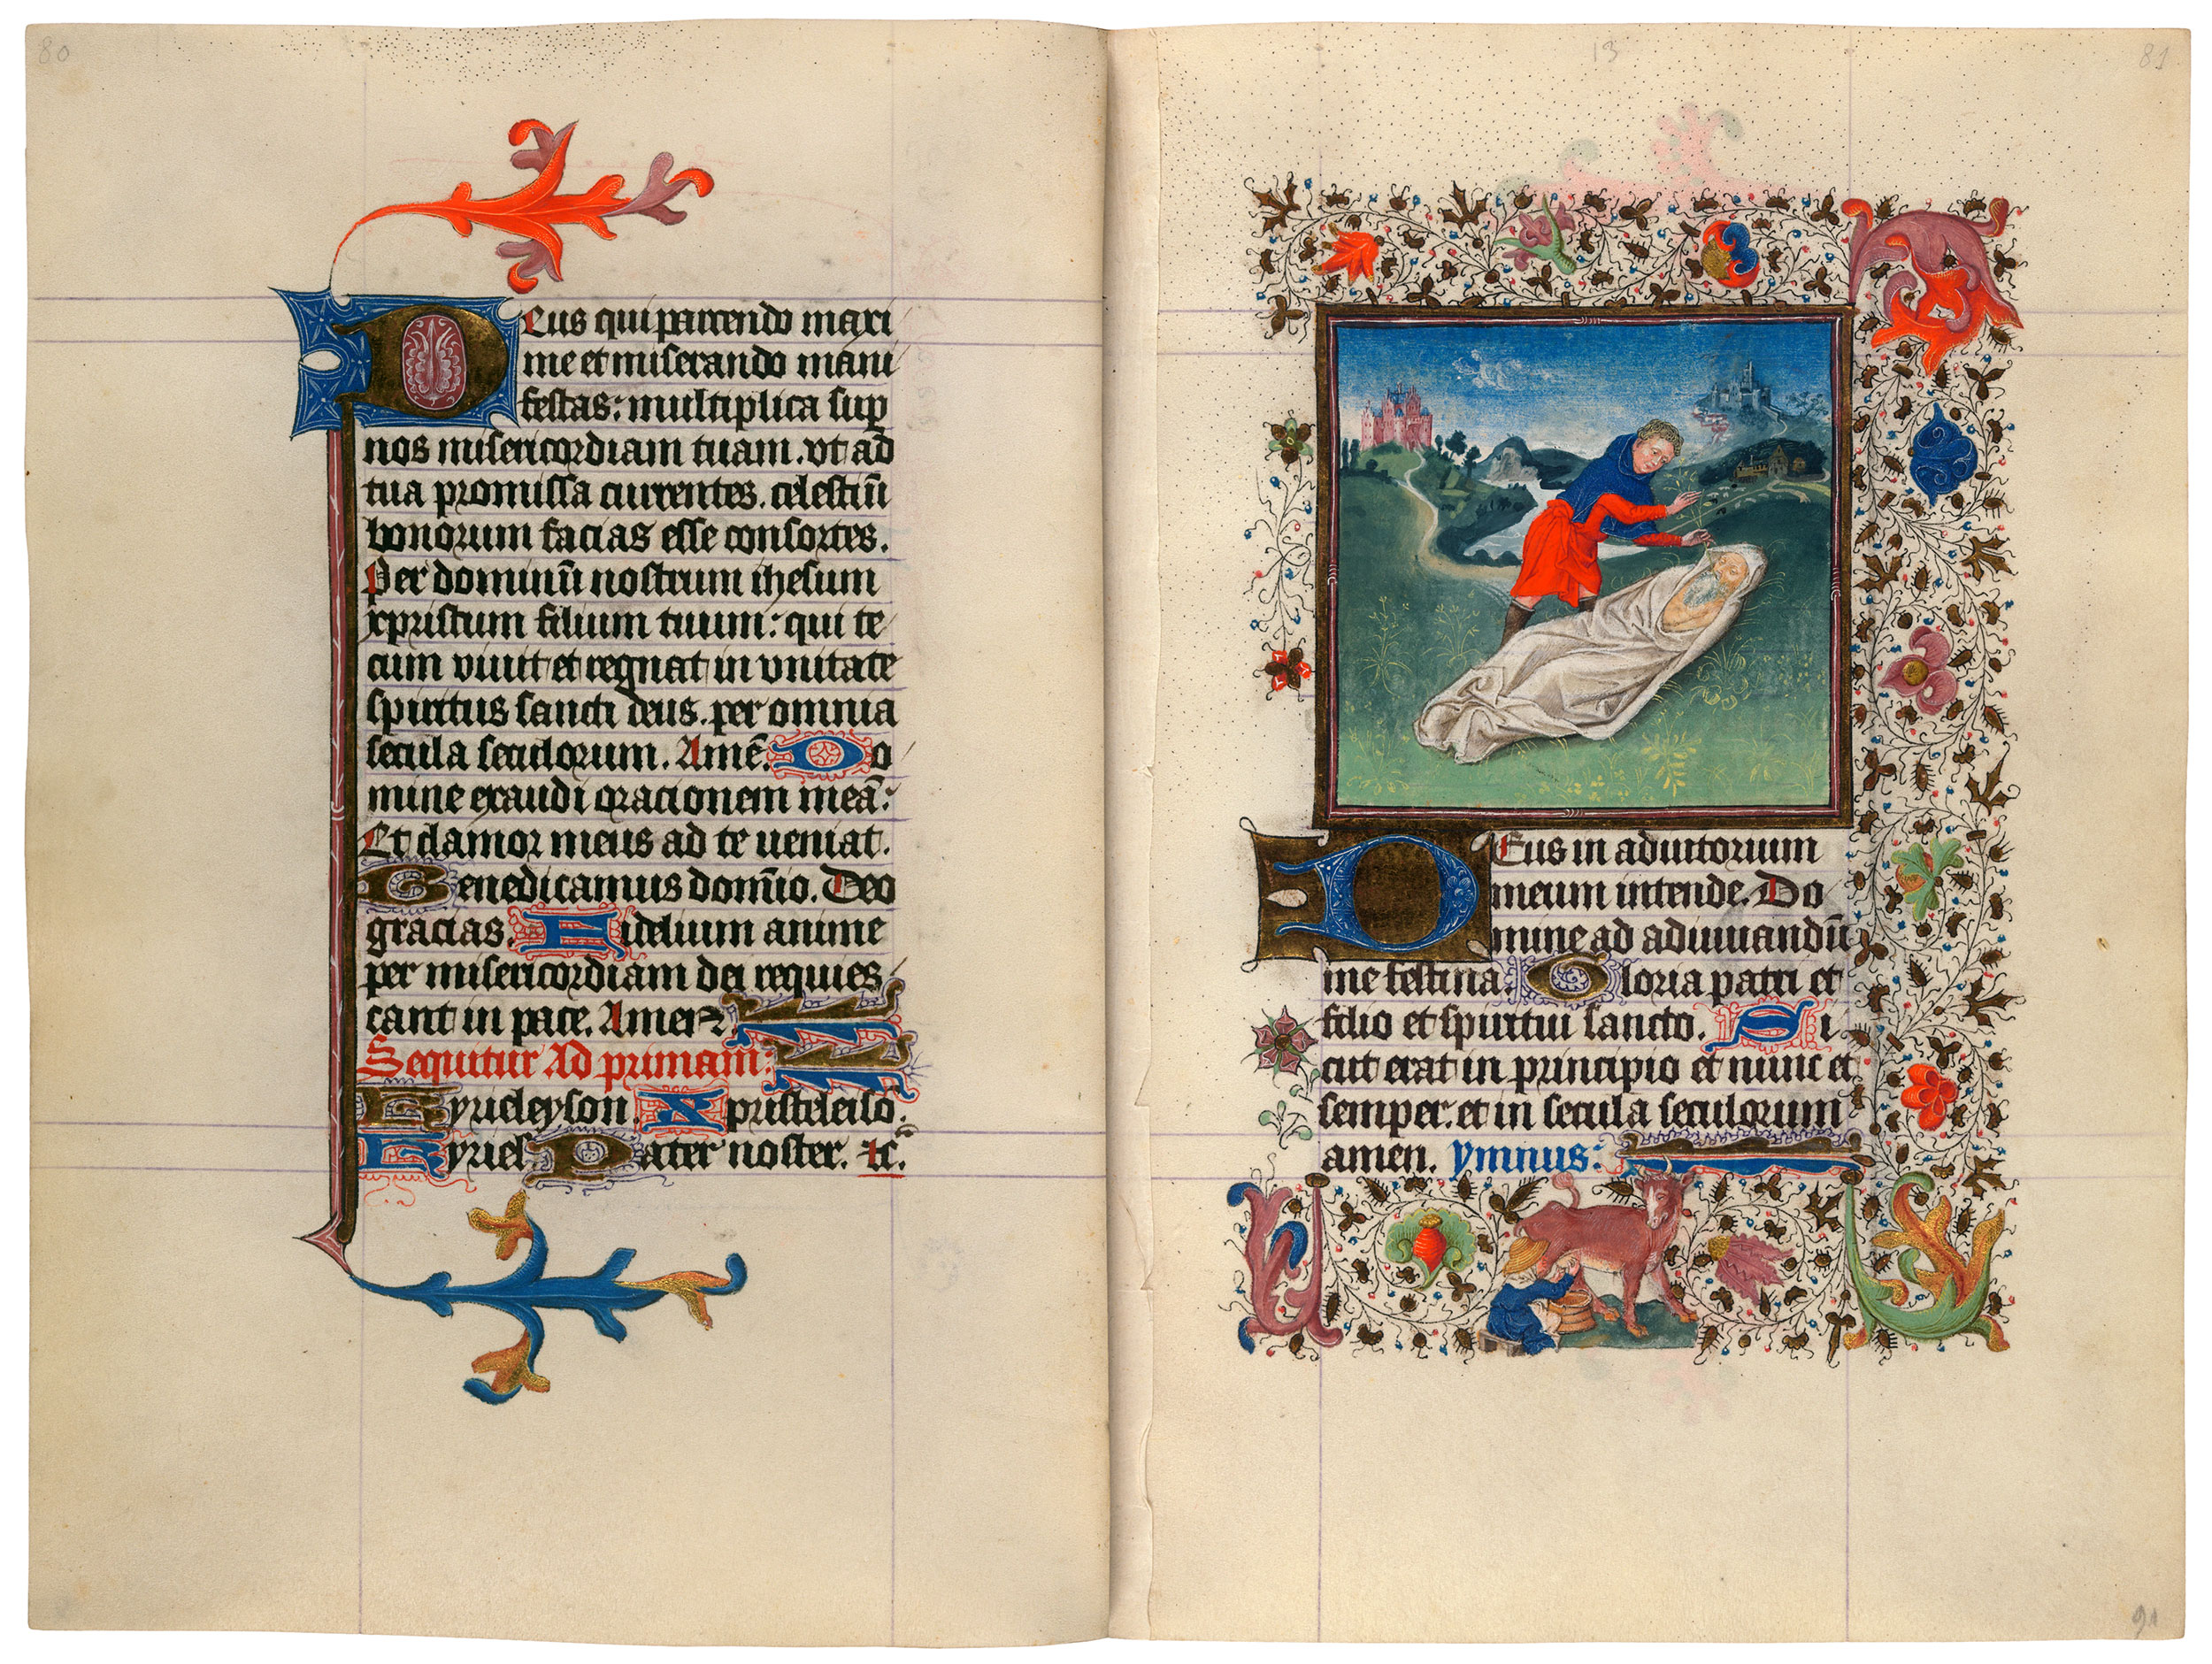 80
Deus qui parcendo maxi
me et miserando mani
festas: multiplica sup̱
nos misericordiam tuam. vt ad
tua promissa currentes. celestiū
bonorum facias esse consortes.
Per dominū nostrum ihesum
xpristum filium tuum: qui te
cum viuit et regnat in vnitate
spiritus sancti deus. per omnia
secula seculorum. Amē. Do
mine exaudi oracionem meā:
Et clamor meus ad te ueniat.
Benedicamus domīo. Deo
gracias. Fidelium anime
per misericordiam dei requies
cant in pace. Amen
Sequitur Ad primam:
Kyrieleyson. Xpristeleisō.
Kyriel. Pater noster. ⁊c̄.
13
81
Deus in adiutorium
meum intende. Do
mine ad adiuuandū
me festina. Gloria patri et
filio et spiritui sancto. Si
cut erat in principio et nunc et
semper. et in secula seculorum
amen. ymnus: